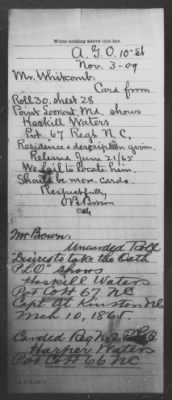 Write nothing above this line.
A. G. O. 10-St
Nov. 3-09
Mr. Whitcomb:
Card from
Roll 30, sheet 28
Point Lookout, Md. shows
Haskill Waters
Pvt. 67 Regt N. C.
Residence & description given.
Released June 21/65
We fail to locate him.
Should be more cards.
Respectfully,
Brown
Mr Brown:
Uncarded Roll
Desires to take the Oath
P.L.O" shows
Haskill Waters
Pvt Co H 67 NC
Capt At Kinston NC
Mch 10, 1865.
Carded Reg No 2
Harper Waters
Pvt Co H 66 NC